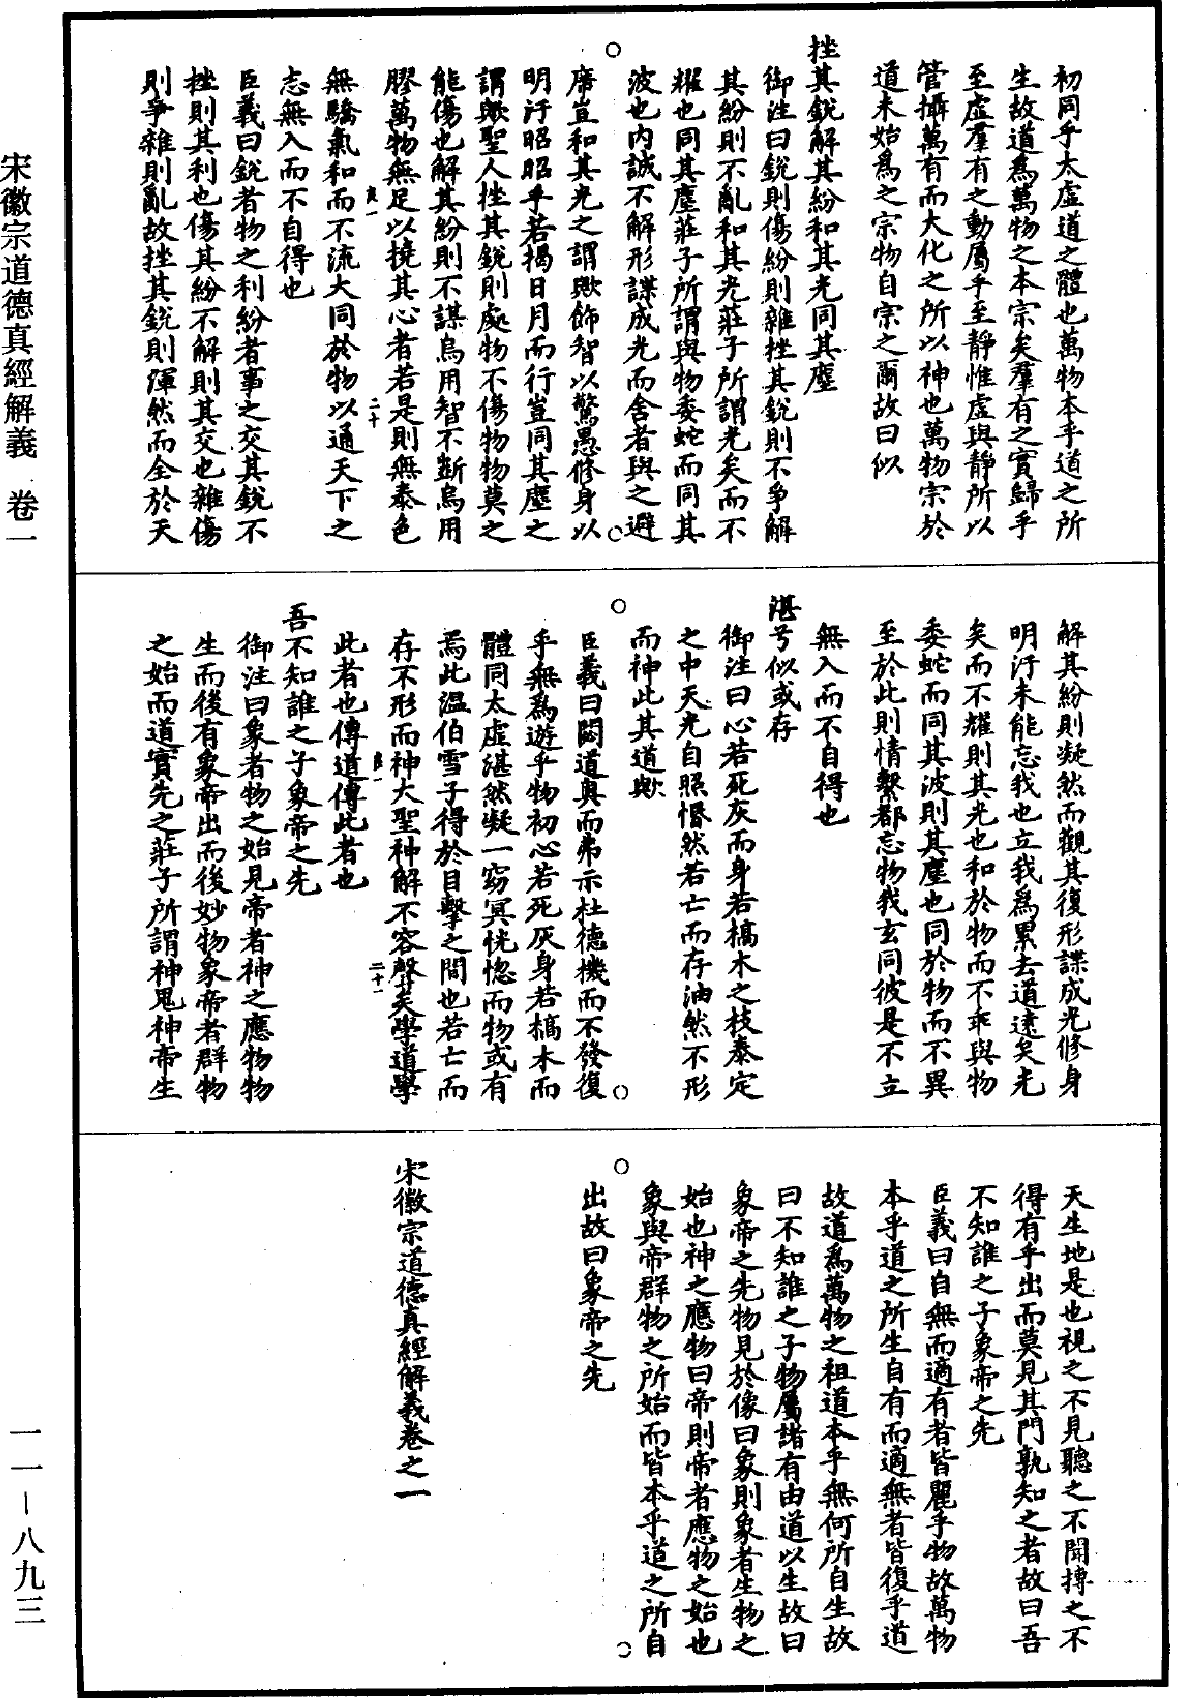 初同乎太虛道之體也萬物本乎道之所
生故道爲萬物之本宗矣羣有之實歸乎
至虛羣有之動屬乎至靜惟虛與靜所以
管攝萬有而大化之所以神也萬物宗於
道未始爲之宗物自宗之爾故曰似
挫其銳解其紛和其光同其塵
御注曰銳則傷紛則雜挫其銳則不爭解
其紛則不亂和其光莊子所謂光矣而不
耀也同其塵莊子所謂與物委蛇而同其
波也内誠不解形諜成光而舍者與之避
席豈和其光之謂歟飾智以驚愚修身以
明汙昭昭乎若揭日月而行豈同其塵之
謂歟聖人挫其銳則處物不傷物物莫之
能傷也解其紛則不謀烏用智不斲烏用
膠萬物無足以撓其心者若是則無泰色
良一
二十
無驕氣和而不流大同於物以通天下之
志無入而不自得也
臣義曰銳者物之利紛者事之交其銳不
挫則其利也傷其紛不解則其交也雜傷
則爭雜則亂故挫其銳則渾然而全於天
解其紛則凝然而觀其復形諜成光修身
明汙未能忘我也立我爲累去道遠矣光
矣而不耀則其光也和於物而不乖與物
委蛇而同其波則其塵也同於物而不異
至於此則情繫都忘物我玄同彼是不立
無入而不自得也
湛兮似或存
御注曰心若死灰而身若槁木之枝泰定
之中天光自照惛然若亡而存油然不形
而神此其道歟
臣義曰閟道奧而弗示杜德機而不發復
乎無爲遊乎物初心若死灰身若槁木而
體同太虛湛然凝一窈冥恍惚而物或有
焉此温伯雪子得於目擊之間也若亡而
存不形而神大聖神解不容聲矣學道學
良一
二十一
此者也傳道傳此者也
吾不知誰之子象帝之先
御注曰象者物之始見帝者神之應物物
生而後有象帝出而後妙物象帝者群物
之始而道實先之莊子所謂神鬼神帝生
天生地是也視之不見聽之不聞搏之不
得有乎出而莫見其門孰知之者故曰吾
不知誰之子象帝之先
臣義曰自無而適有者皆麗乎物故萬物
本乎道之所生自有而適無者皆復乎道
故道爲萬物之祖道本乎無何所自生故
曰不知誰之子物屬諸有由道以生故曰
象帝之先物見於像曰象則象者生物之
始也神之應物曰帝則帝者應物之始也
象與帝群物之所始而皆本乎道之所自
出故曰象帝之先
宋徽宗道德真經解義卷之一
宋徽宗道德真經解義 卷一
一一—八九三